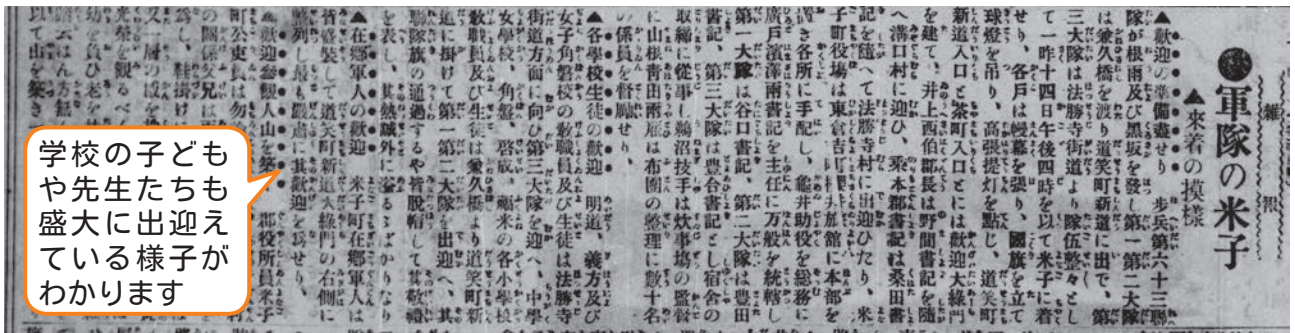 雑報
●軍隊の米子
▲來着の摸樣
▲歡迎の準備盡せり 歩兵第六十三聯
隊が根雨及び黒坂を發し第一第二大隊
は兼久橋を渡り道笑町新道に出で、第
三大隊は法勝寺街道より隊伍整々とし
て一昨十四日午後四時を以て米子に着
せり、各戸は幔幕を張り、國旗を立て
球燈を吊り、高張提灯を點じ、道笑町
新道入口と茶町入口とには歡迎大綠門
を建て、井上西伯郡長は野間書記を隨
へ溝口村に迎ひ、栗本郡書記は桑田書
記を隨へて法勝寺村に出迎ひたり、米
子町役場は東倉吉町
館に本部を
き各所に手配し、龜井助役を總務に
廣戸濱澤兩書記を主任に万般を統轄し
第一大隊は谷口書記、第二大隊は豊田
書記、第三大隊は豊合書記とし宿舍の
取締に從事し鷲沼技手は炊事塲の監督
に山根靑田兩雇は布團の整理に數十名
の係員を督勵せり、
▲各學校生徒の歡迎 明道、義方及び
女子角磐校の敎職員及び生徒は法勝寺
街道方面に向ひ第三大隊を迎へ、中學
女學校、角盤、啓成、車尾の各小學校
敎職員及び生徒は兼久橋より道笑町新
道に掛けて第一第二大隊を出迎へ、其
聯隊旗の通過するや皆脱帽して其敬禮
を表し、其熱誠外に溢るばかりなり
▲在郷軍人の歡迎 米子町在郷軍人は
皆盛裝して道笑町新道大綠門の右側に
整列し最も嚴肅に其歡迎を爲せり、
▲歡迎參觀人山を築く 郡役所員米子
町公吏員は勿
の關係父兄は
爲し、鞋掛け
又一層の
光榮を觀るべく
幼を負ひ老を
以て山を築き
学校の子ども
や先生たちも
盛大に出迎え
ている様子が
わかります